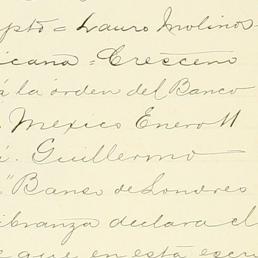 cpto = Lauro Molinos
icana = Cresceno
á la órden del Banco
Mexico Enero 11
Guillermo
" Banco de Londres
ibranza declara el
que en esta escri